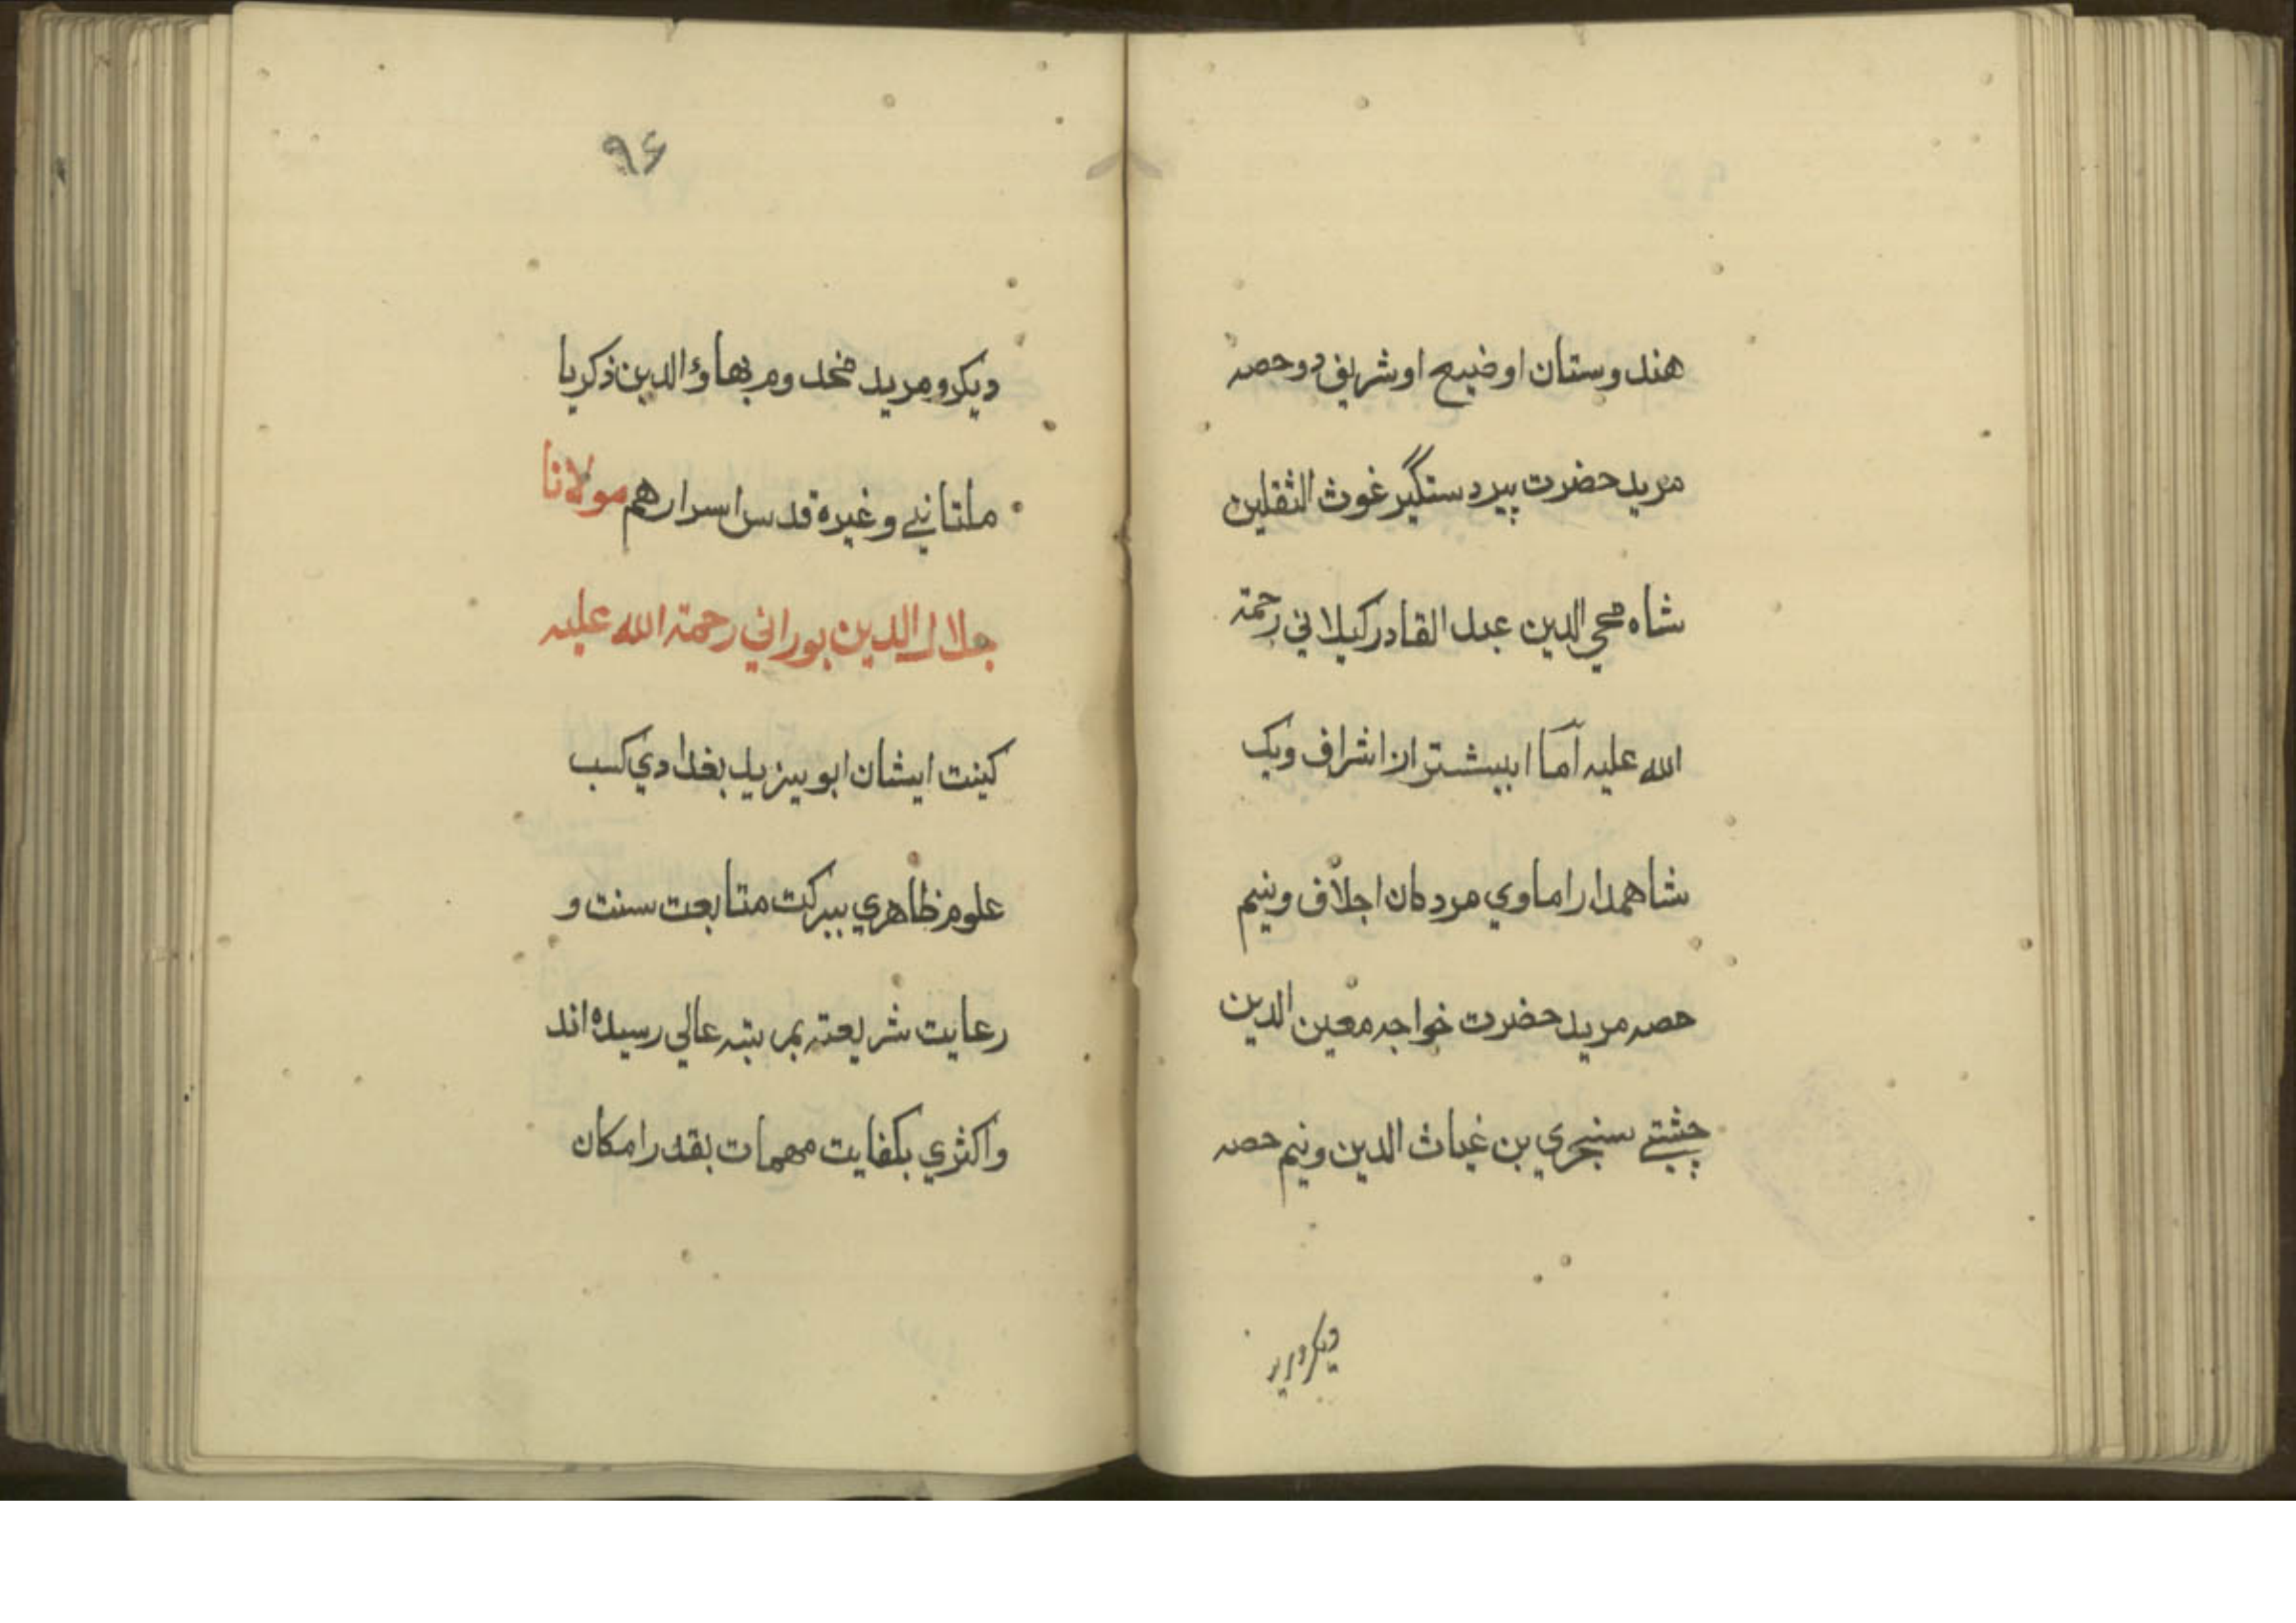 هندوستان اوضیح اوشریف دوحصه
مرید حضرت پیر دستگیر غوث الثقلین
شاه محی الدین عبد القادر کیلانی رحمة
الله علیه آما ابیشتر از اشراف ویک
شاهمدار اماوی مردمان اجلاف ونیم
حصه مرید حضرت خواجه معین الدین
چشتے سنجری بن غیاث الدین ونیم حصه
۹۶
دیکر ومرید مخدوم بهاؤ الدین ذکریا
ملتانے وغیره قدس اسرارهم مولانا
جلال الدین بورانی رحمة الله علیه
کینت ایشان ابو یزید بغدادی کسب
علوم ظاهری ببرکت متابعت سنت و
رعایت شریعته بمرتبه عالی رسیده اند
واکثری بکفایت مهمات بقدر امکان